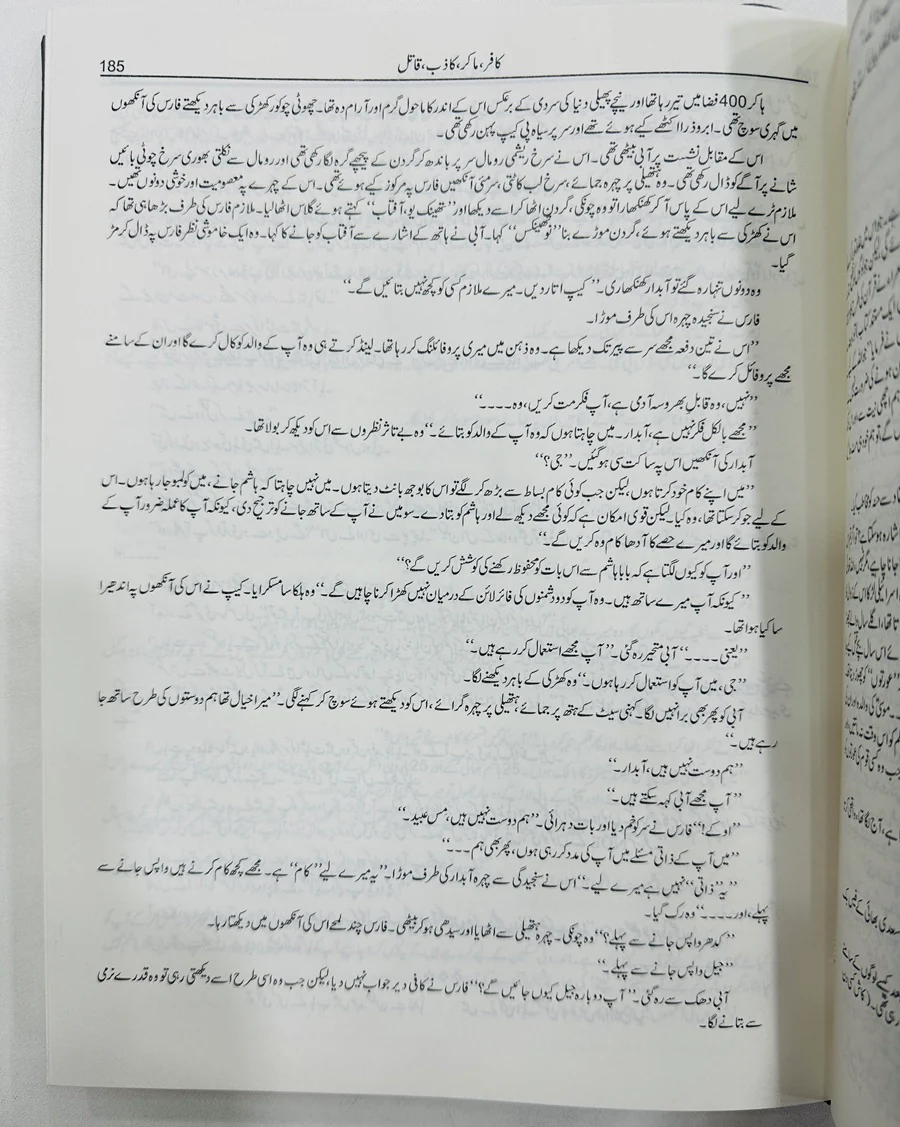 185
کافر، ماکر، کاذب، قاتل
ہاکر 400 فضا میں تیر رہا تھا اور نیچے پھیلی دنیا کی سردی کے برعکس اس کے اندر کا ماحول گرم اور آرام دہ تھا۔ چھوٹی چوکور کھڑکی سے باہر دیکھتے فارس کی آنکھوں
میں گہری سوچ تھی۔ ابرو ذرا اکٹھے کیے ہوئے تھے اور سر پر سیاہ پی کیپ پہن رکھی تھی۔
اس کے مقابل نشست پر آبی بیٹھی تھی۔ اس نے سرخ ریشمی رومال سر پر باندھ کر گردن کے پیچھے گرہ لگا رکھی تھی اور رومال سے نکلتی بھوری سرخ چوٹی بائیں
شانے پر آگے کو ڈال رکھی تھی۔ وہ ہتھیلی پر چہرہ جمائے، سرخ لب کاٹتی، سرمئی آنکھیں فارس پہ مرکوز کیے ہوئے تھی۔ اس کے چہرے پہ معصومیت اور خوشی دونوں تھیں۔
ملازم ٹرے لیے اس کے پاس آ کر کھنکھارا تو وہ چونکی، گردن اٹھا کر اسے دیکھا اور ”تھینک یو، آفتاب“ کہتے ہوئے گلاس اٹھا لیا۔ ملازم فارس کی طرف بڑھا ہی تھا کہ
اس نے کھڑکی سے باہر دیکھتے ہوئے، گردن موڑے بنا ”نو تھینکس“ کہا۔ آبی نے ہاتھ کے اشارے سے آفتاب کو جانے کا کہا۔ وہ ایک خاموشی نظر فارس پہ ڈال کر مڑ
گیا۔
وہ دونوں تنہا رہ گئے تو آبدار کھنکھاری۔ ”کیپ اتار دیں۔ میرے ملازم کسی کو کچھ نہیں بتائیں گے۔“
فارس نے سنجیدہ چہرہ اس کی طرف موڑا۔
”اس نے تین دفعہ مجھے سر سے پیر تک دیکھا ہے۔ وہ ذہن میں میری پروفائلنگ کر رہا تھا۔ لینڈ کرتے ہی وہ آپ کے والد کو کال کرے گا اور ان کے سامنے
مجھے پروفائل کرے گا۔“
”نہیں، وہ قابل بھروسہ آدمی ہے، آپ فکر مت کریں، وہ۔۔۔۔“
”مجھے بالکل فکر نہیں ہے، آبدار۔ میں چاہتا ہوں کہ وہ آپ کے والد کو بتائے۔“ وہ بے تاثر نظروں سے اس کو دیکھ کر بولا تھا۔
آبدار کی آنکھیں اس پہ ساکت سی ہو گئیں۔ ”جی؟“
”میں اپنے کام خود کرتا ہوں، لیکن جب کوئی کام بساط سے بڑھ کر لگے تو اس کا بوجھ بانٹ دیتا ہوں۔ میں نہیں چاہتا کہ ہاشم جانے، میں کولمبو جا رہا ہوں۔ اس
کے لیے جو کر سکتا تھا، وہ کیا۔ لیکن قوی امکان ہے کہ کوئی مجھے دیکھ لے اور ہاشم کو بتا دے۔ سو میں نے آپ کے ساتھ جانے کو ترجیح دی، کیونکہ آپ کا عملہ ضرور آپ کے
والد کو بتائے گا اور میرے حصے کا آدھا کام وہ کریں گے۔“
”اور آپ کو کیوں لگتا ہے کہ بابا ہاشم سے اس بات کو محفوظ رکھنے کی کوشش کریں گے؟“
”کیونکہ آپ میرے ساتھ ہیں۔ وہ آپ کو دو دشمنوں کی فائر لائن کے درمیان نہیں کھڑا کرنا چاہیں گے۔“ وہ ہلکا سا مسکرایا۔ کیپ نے اس کی آنکھوں پہ اندھیرا
سا کیا ہوا تھا۔
”یعنی ۔۔۔۔“ آبی متحیر رہ گئی۔ ”آپ مجھے استعمال کر رہے ہیں۔“
”جی، میں آپ کو استعمال کر رہا ہوں۔“ وہ کھڑکی کے باہر دیکھنے لگا۔
آبی کو پھر بھی برا نہیں لگا۔ کہنی سیٹ کے ہتھ پر جمائے، ہتھیلی پر چہرہ گرائے، اس کو دیکھتے ہوئے سوچ کر کہنے لگی۔ ”میرا خیال تھا ہم دوستوں کی طرح ساتھ جا
رہے ہیں۔“
”ہم دوست نہیں ہیں، آبدار۔“
”آپ مجھے آبی کہہ سکتے ہیں۔“
”اوکے!“ فارس نے سر کو خم دیا اور بات دہرائی۔ ”ہم دوست نہیں ہیں، مس عبید۔“
”میں آپ کے ذاتی مسئلے میں آپ کی مدد کر رہی ہوں، پھر بھی ہم ۔۔۔“
”یہ ”ذاتی“ نہیں ہے میرے لیے۔“ اس نے سنجیدگی سے چہرہ آبدار کی طرف موڑا۔ ”یہ میرے لیے ”کام“ ہے۔ مجھے کچھ کام کرنے ہیں واپس جانے سے
پہلے، اور ۔۔۔۔“ وہ رک گیا۔
”کدھر واپس جانے سے پہلے؟“ وہ چونکی۔ چہرہ ہتھیلی سے اٹھایا اور سیدھی ہو کر بیٹھی۔ فارس چند لمحے اس کی آنکھوں میں دیکھتا رہا۔
”جیل واپس جانے سے پہلے۔“
آبی دھک سے رہ گئی۔ ”آپ دوبارہ جیل کیوں جائیں گے؟“ فارس نے کافی دیر جواب نہیں دیا، لیکن جب وہ اسی طرح اسے دیکھتی رہی تو وہ قدرے نرمی
سے بتانے لگا۔